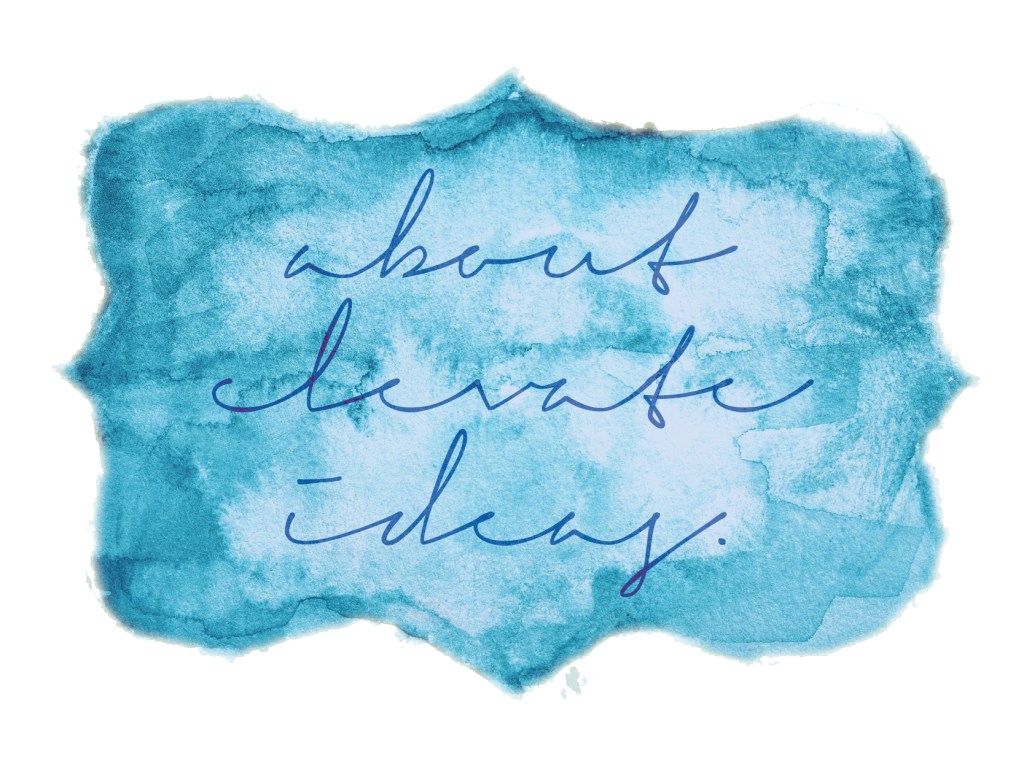 about
elevate
ideas.